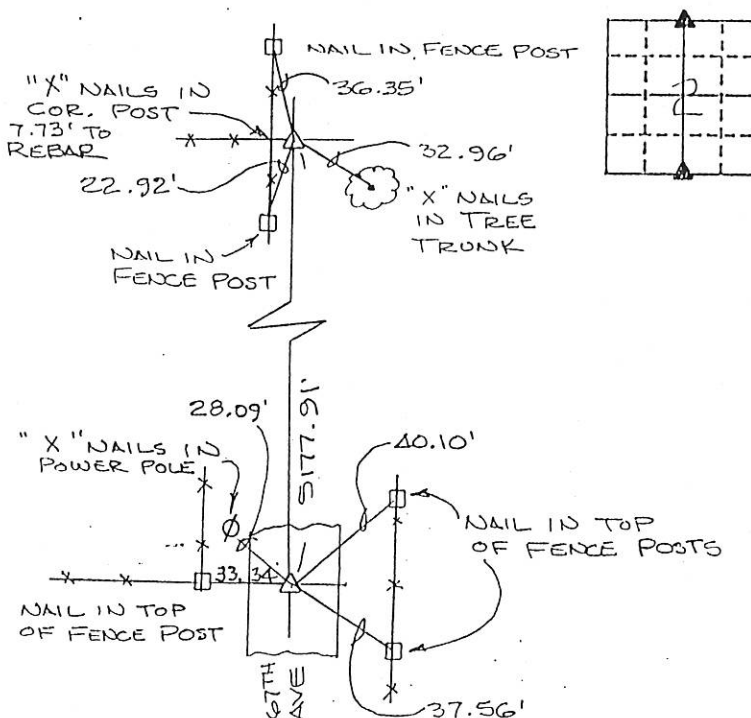 NAIL IN FENCE POST
36.35'
"X" NAILS IN
COR. POST
7.73' TO
REBAR
32.96'
22.92'
"X" NAILS
IN TREE
TRUNK
NAIL IN
FENCE POST
2
28.09'
5177.91'
40.10'
"X" NAILS IN
POWER POLE
NAIL IN TOP
OF FENCE POSTS
33.34
NAIL IN TOP
OF FENCE POST
67TH
AVE
37.56'